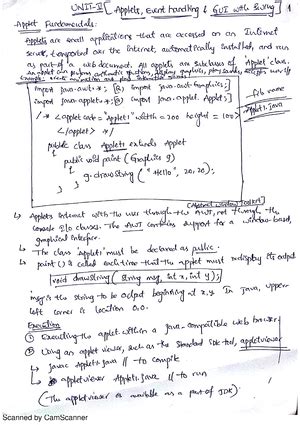 UNIT-V [Applets, Event handling & GUI with Swing] 1
Applet Fundamentals:
Applets are small applications that are accessed on an Internet
server, transported over the Internet, automatically installed, and run
as part of a web document. All applets are subclasses of "Applet" class.
An applet can perform arithmetic functions, display graphics, play sounds,
import java.awt.*; (or) import java.awt.Graphics;
import java.applet.*; (or) import java.applet.Applet;
file name
Applet1.java
/* <applet code="Applet1" width=200 height=100>
</applet> */
public class Applet1 extends Applet
public void paint (Graphics g)
g.drawString ("Hello", 20, 20);
}
}
(Abstract Window Toolkit)
↳ Applets interact with the user through the AWT, not through the
console I/o classes. The AWT contains support for a window-based,
graphical interface.
↳ The class "Applet" must be declared as public.
↳ paint() is called each time that the applet must redisplay its output
void drawString (String msg, int x, int y);
"msg is the string to be output beginning at x,y. In java, upper
left corner is location 0,0.
Execution
① Executing the applet within a Java-compatible web browser
② Using an applet viewer, such as the standard SDK tool, appletviewer
↳ javac Applet1.java // - to compile
↳ appletviewer Applet1.java // - to run
(The appletviewer is available as a part of JDK)
Scanned by CamScanner